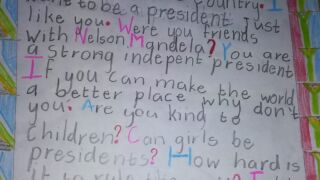 to be a president just
like you. Were you friends
with Nelson Mandela? You are
a strong indepent president
If you can make the world
a better place why don't
you. Are you kind to
children? Can girls be
presidents? How hard is
it to rule the